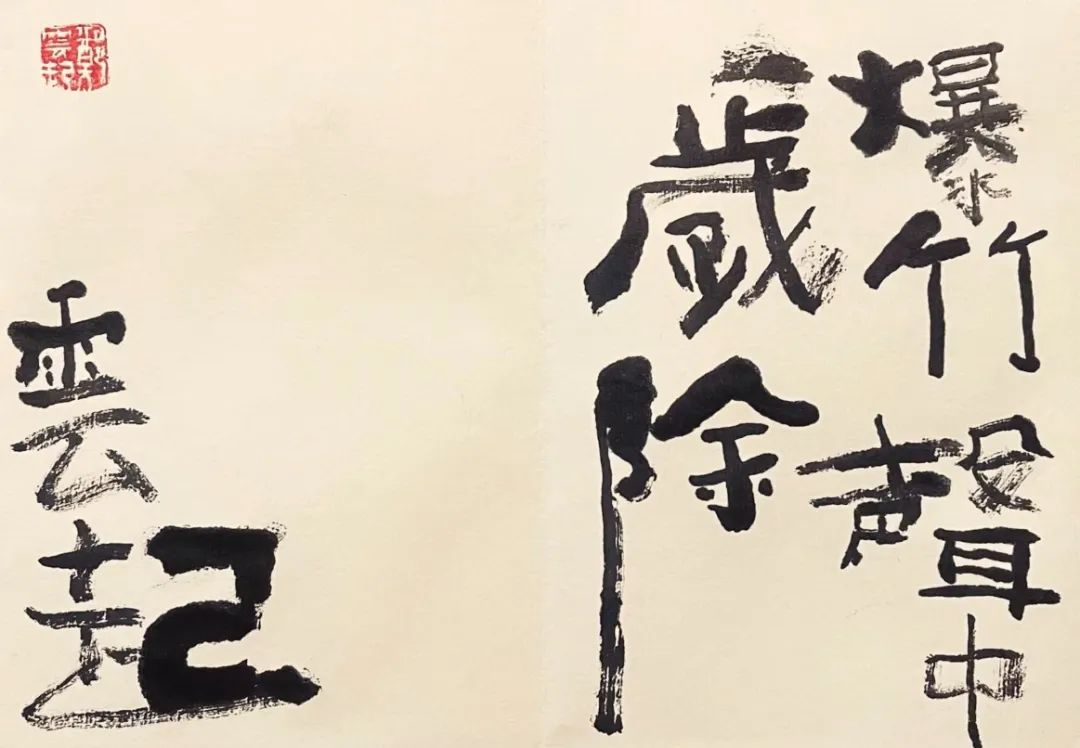 爆竹聲中
一歲除
雲起